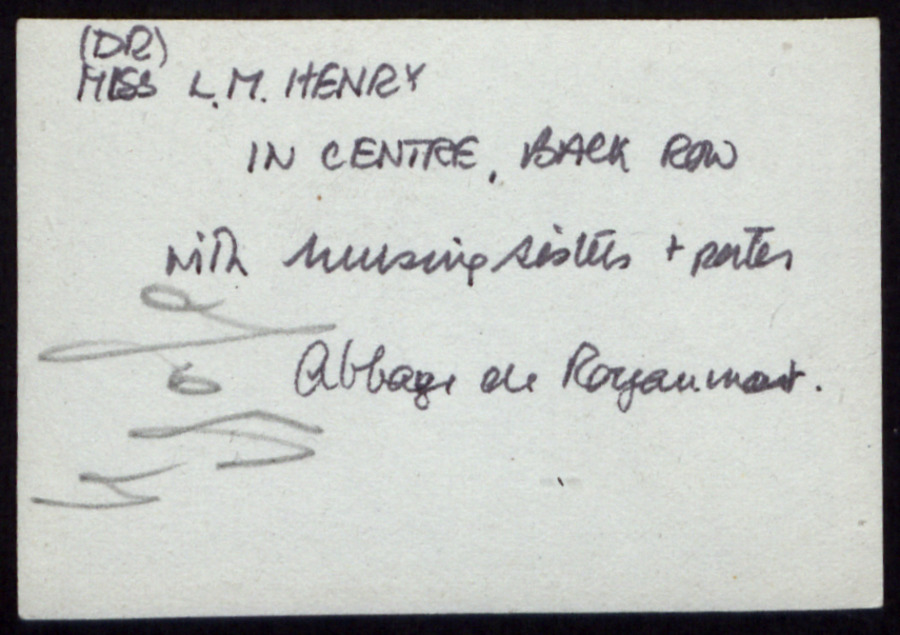 (DR)
MISS L.M. HENRY
IN CENTRE, BACK ROW
with nursing sisters + porter
Abbaye de Royaumont.